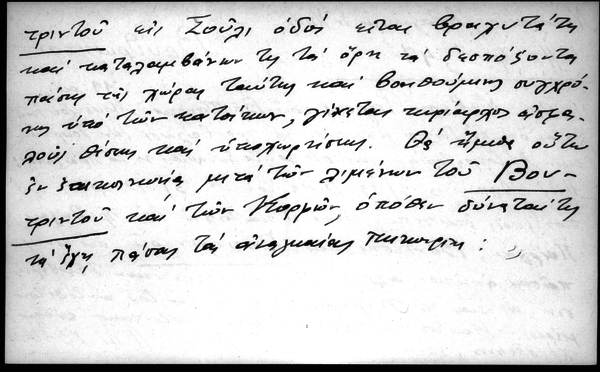 τριντοῦ εἰς Σοῦλι ὁδός εἶναι βραχυτάτη
καί καταλαμβάνων τις τά ὄρη τά δεσπόζοντα
πάσης τῆς χώρας ταύτης καί βοηθούμενος συγχρό-
νως ὑπό τῶν κατοίκων, γίνεται κυρίαρχος ἀσφα-
λοῦς θέσεως καί ὑποχωρήσεως. Θά εἴμεθα οὕτω
ἐν ἐπικοινωνίᾳ μετά τῶν λιμένων τοῦ Βου-
τριντοῦ καί τῶν ὁπόθεν δύναταί τις
νά ἔχῃ πάσας τάς ἀναγκαίας